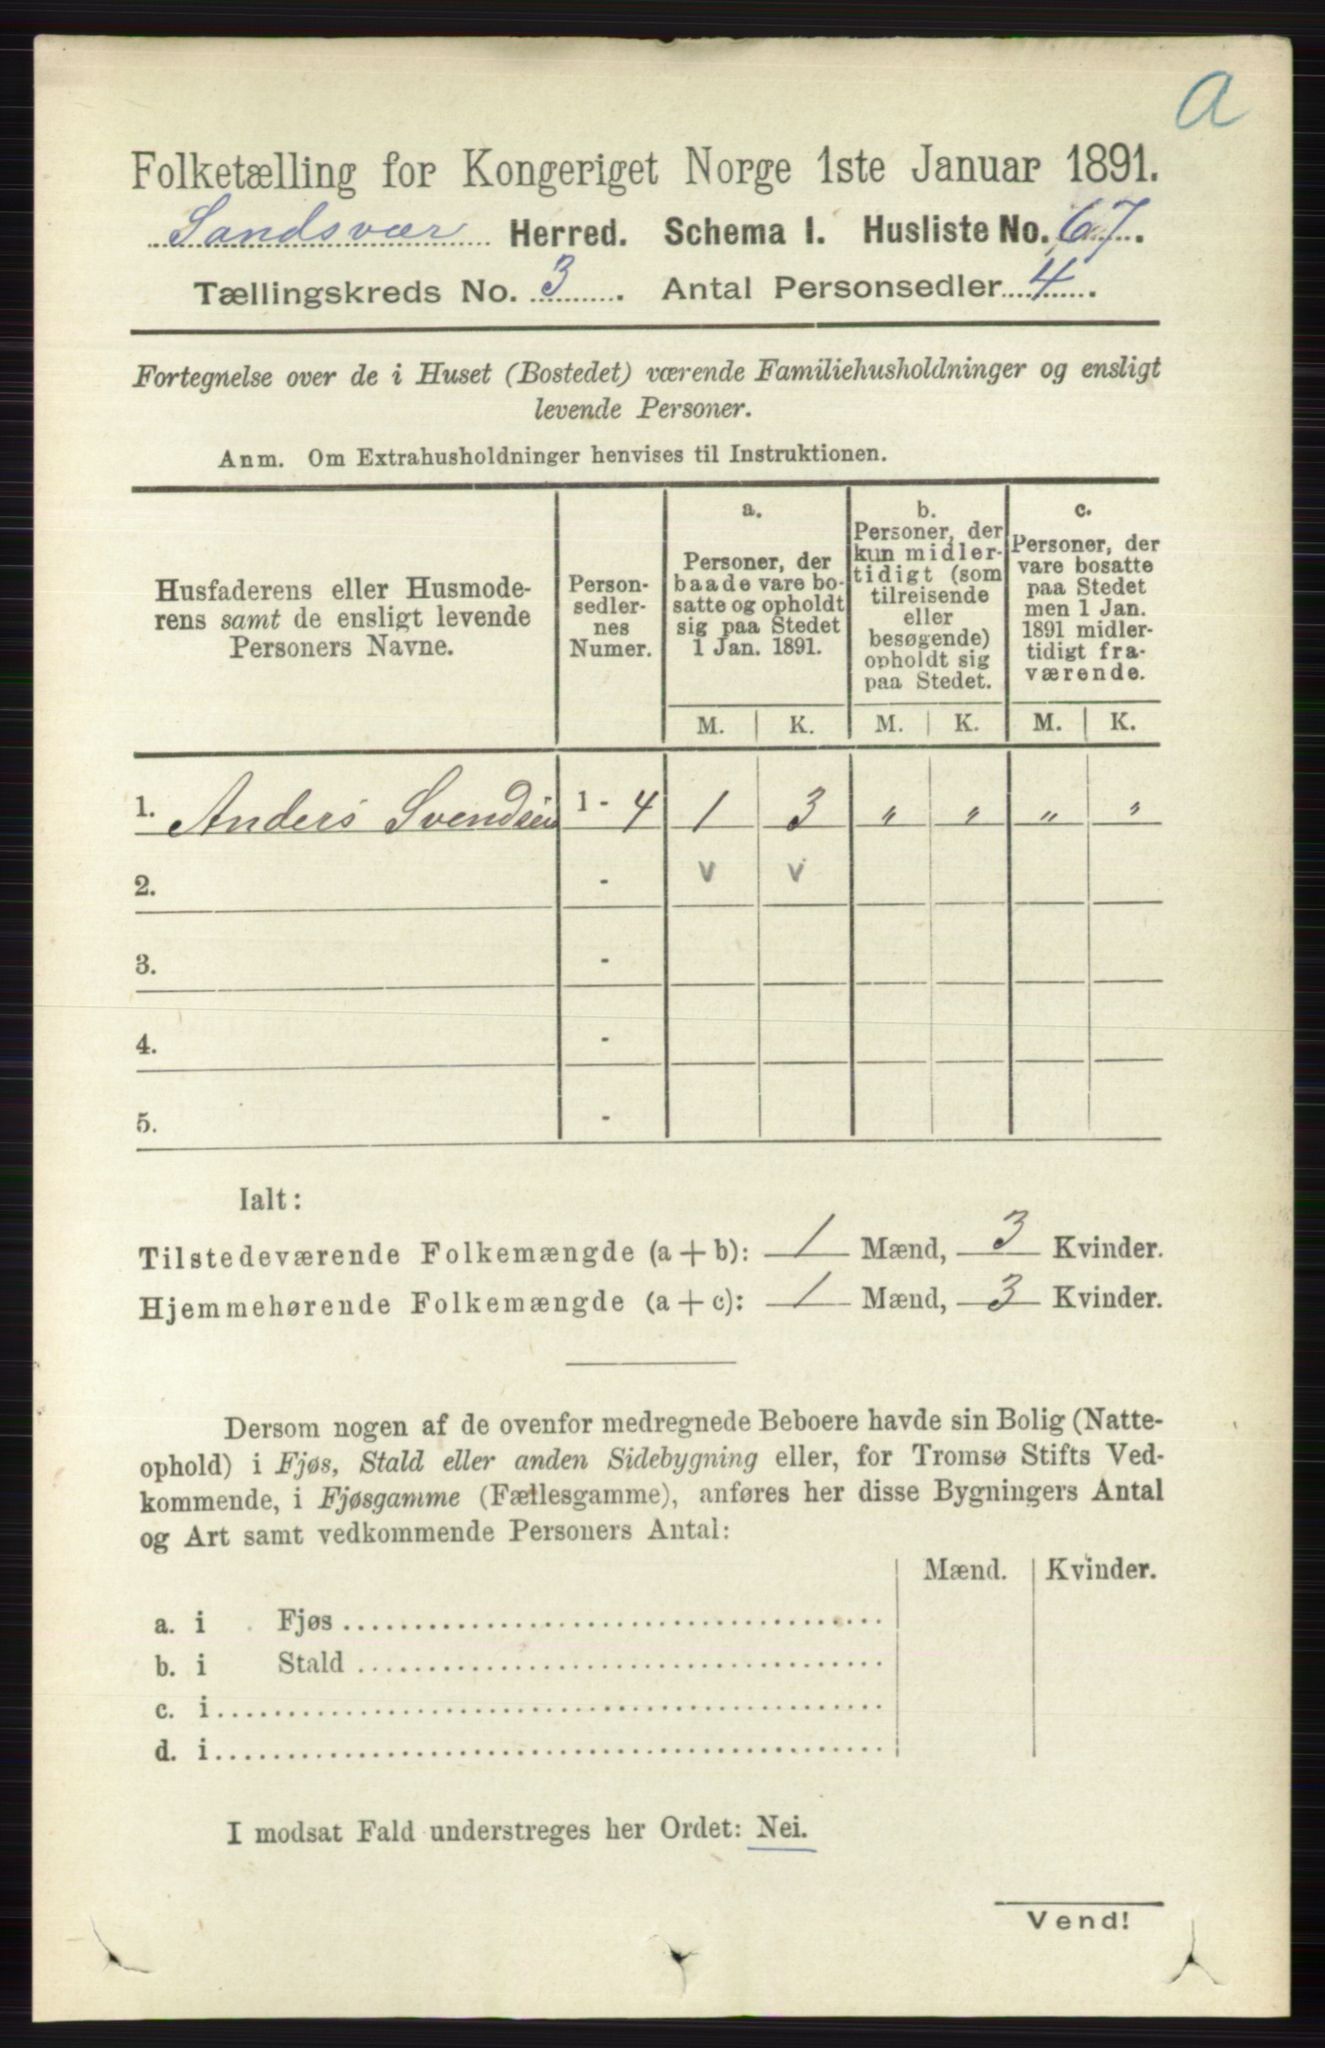 a
Folketælling for Kongeriget Norge 1ste Januar 1891.
Sandsvær Herred. Schema 1. Husliste No. 67.
Tællingskreds No. 3. Antal Personsedler 4.
Fortegnelse over de i Huset (Bostedet) værende Familiehusholdninger og ensligt
levende Personer.
Anm. Om Extrahusholdninger henvises til Instruktionen.
Husfaderens eller Husmode-
rens samt de ensligt levende
Personers Navne.
Person-
sedler-
nes
Numer.
a.
Personer, der
baade vare bo-
satte og opholdt
sig paa Stedet
1 Jan. 1891.
b.
Personer, der
kun midler-
tidigt (som
tilreisende
eller
besøgende)
opholdt sig
paa Stedet.
c.
Personer, der
vare bosatte
paa Stedet
men 1 Jan.
1891 midler-
tidigt fra-
værende.
M. K. M. K. M. K.
1. Anders Svendsen 1 - 4 1 3 " " " "
2. - v v
3. -
4. -
5. -
Ialt:
Tilstedeværende Folkemængde (a + b): 1 Mænd, 3 Kvinder.
Hjemmehørende Folkemængde (a + c): 1 Mænd, 3 Kvinder.
Dersom nogen af de ovenfor medregnede Beboere havde sin Bolig (Natte-
ophold) i Fjøs, Stald eller anden Sidebygning eller, for Tromsø Stifts Ved-
kommende, i Fjøsgamme (Fællesgamme), anføres her disse Bygningers Antal
og Art samt vedkommende Personers Antal:
Mænd. Kvinder.
a. i Fjøs
b. i Stald
c. i
d. i
I modsat Fald understreges her Ordet: Nei.
Vend!